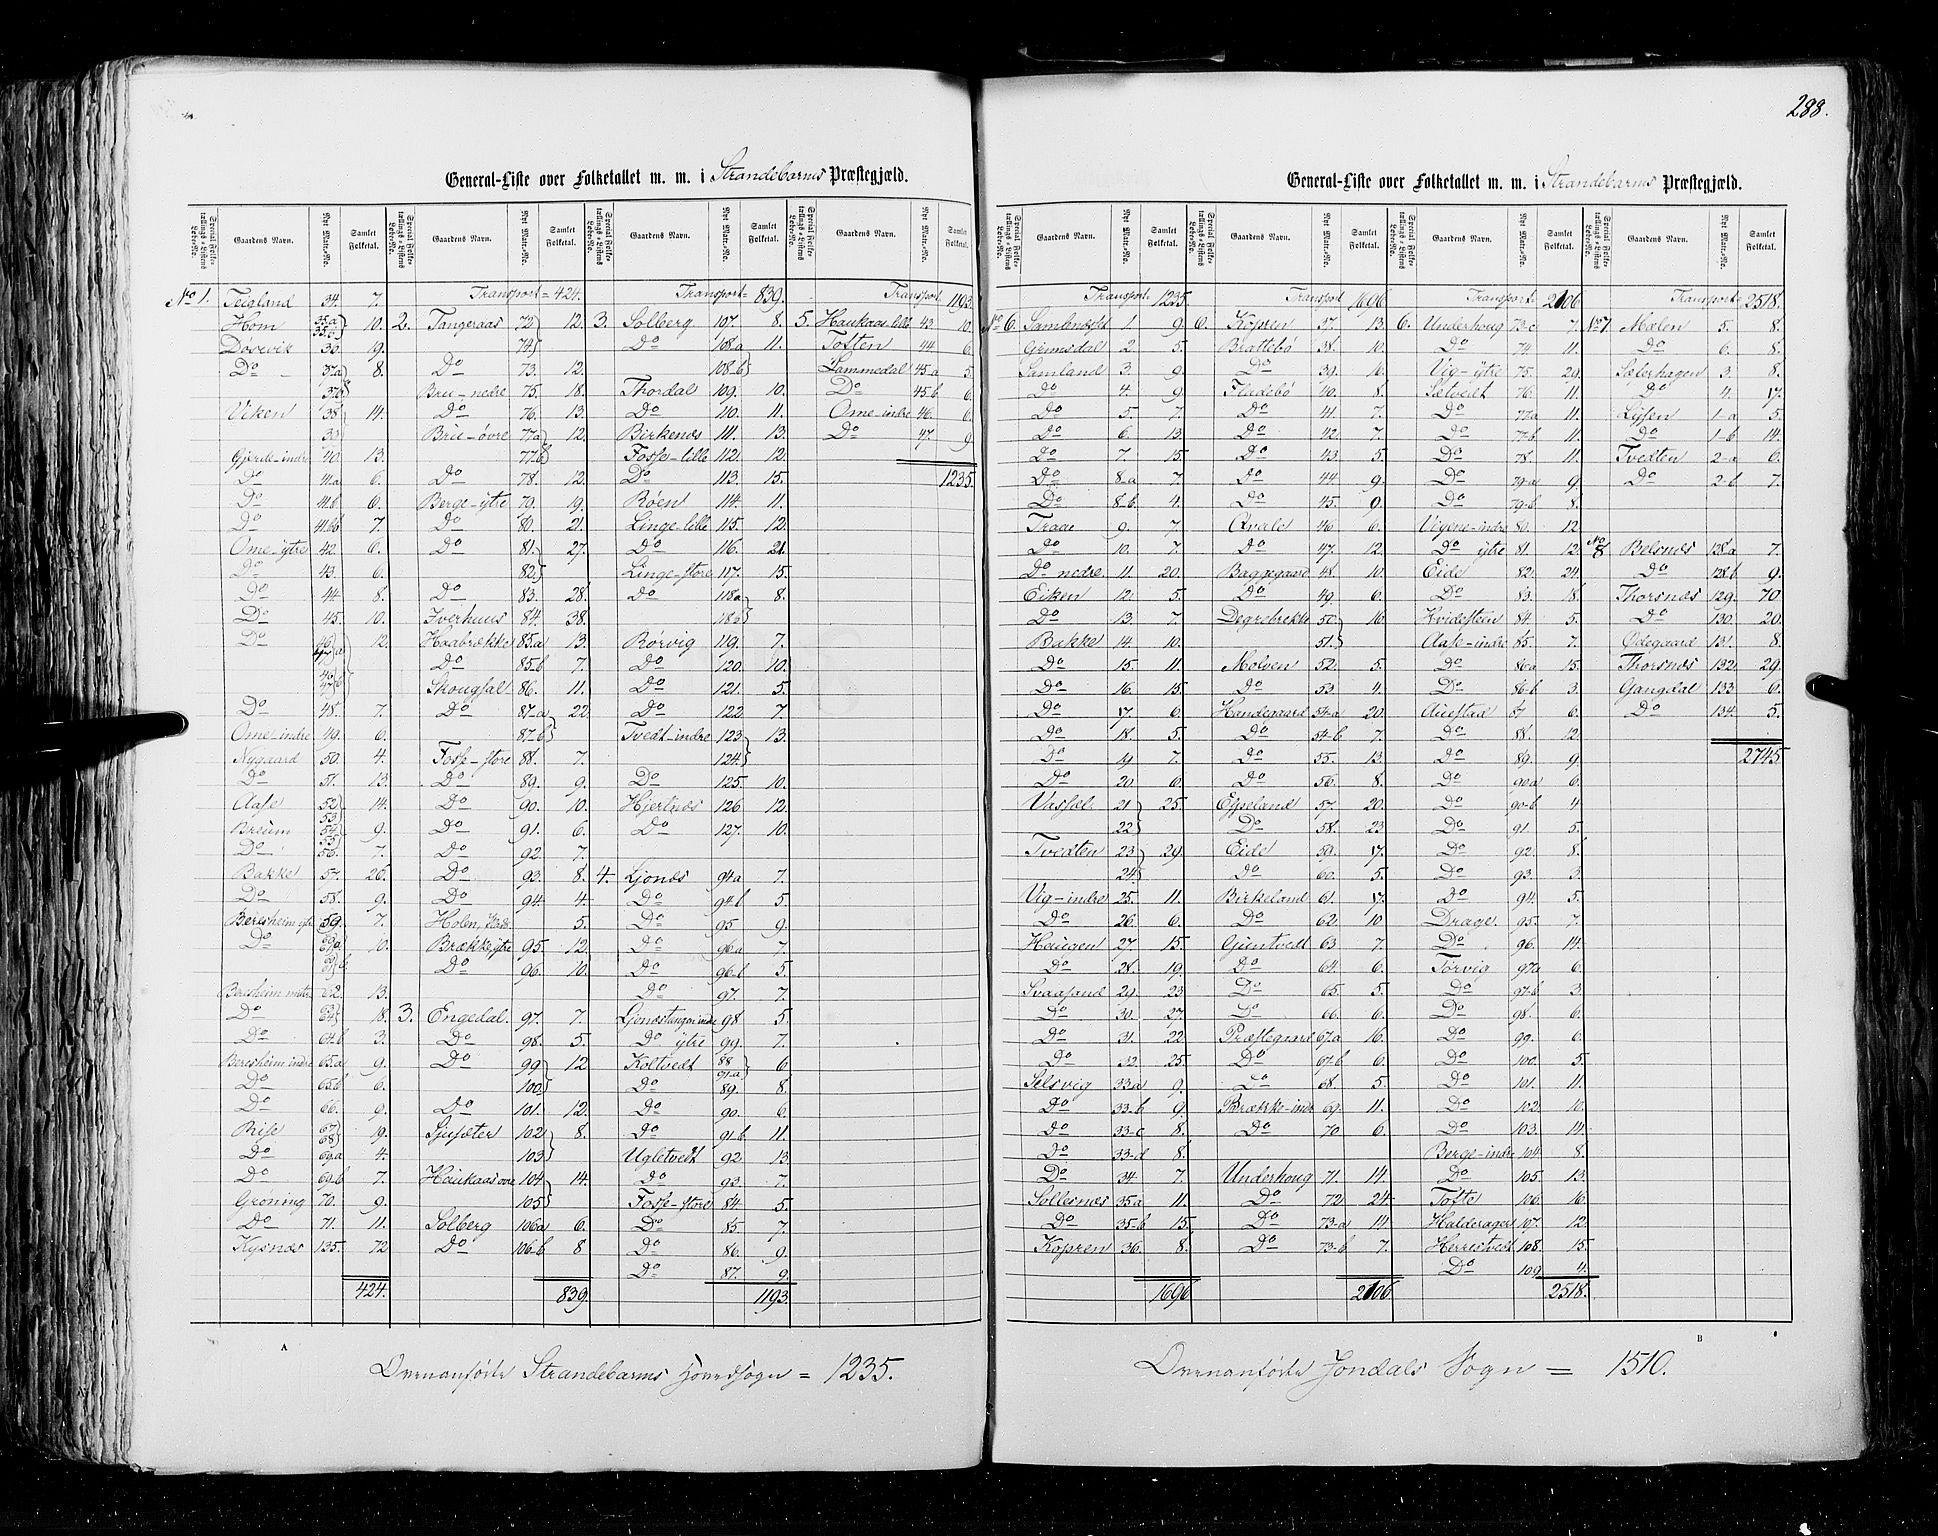 288.
General-Liste over Folketallet m. m. i Strandebarms Præstegjæld.
Special Folketællings-Listens Løbe-No. Gaardens Navn. Nyt Matr.-No. Samlet Folketal.
No 1. Teigland 34. 7.
Hom 35a 35b 10.
Døsevik 36. 19.
Do 37a 37b 8.
Viken 38 39 14.
Gjerde-indre 40. 13.
Do 41a 6.
Do 41b 6.
Do 41bb 7
Ome-ytre 42. 6.
Do 43. 6.
Do 44. 8.
Do 45. 10.
Do 12.
Do 48. 7.
Ome-indre 49. 6.
Nygaard 50. 4.
Do 51. 13.
Aase 52 53 14.
Breum 54 55 9.
Do 56. 7.
Bakke 57. 20.
Do 58. 9.
Beresheim ytre 59. 7.
Do 10.
Beresheim mitre 62. 13.
Do 18.
Do 64b 3.
Beresheim indre 65a 9.
Do 65b 6.
Do 66. 9.
Rise 67 68 19.
Do 69a 4.
Do 69b 7.
Grøning 70. 9.
Do 71. 11.
Kysnæs 135. 72
424.
Transport = 424.
2. Tangeraas 72 74 12.
Do 73. 12.
Bru-nedre 75. 18.
Do 76. 13.
Bru-øvre 77a 77b 12.
Do 78. 12.
Berge-ytre 79. 19.
Do 80. 21.
Do 81. 82. 27.
Do 83. 28.
Iverhuus 84. 38.
Haabrække 85a 13.
Do 85b 7.
Skougsal 86. 11.
Do 87-a 87-b 22
Fosse-store 88. 7.
Do 89. 9.
Do 90. 10.
Do 91. 6.
Do 92. 7.
Do 93. 8.
Do 94. 4.
Holen, 5.
Brække ytre 95. 12.
Do 96. 10.
3. Engedal 97. 7.
Do 98. 5.
Do 99 100 12
Do 101. 12.
Sjusæter 102 103 8.
Haukaas øvre 104 105 14.
Solberg 106a 6.
Do 106-b 8
839.
Transport = 839.
3. Solberg 107. 8.
Do 108a 108-b 11.
Thordal 109. 10.
Do 110. 11.
Birkenæs 111. 13.
Fosse-lille 112. 12.
Do 113. 15.
Røen 114. 11.
Linge-lille 115. 12.
Do 116. 21.
Linge-store 117. 15.
Do 118a 118b 8.
Rørvig 119. 7.
Do 120. 10.
Do 121. 5.
Do 122. 7.
Tvedt-indre 123 124 13.
Do 125. 10.
Hjertnæs 126 12.
Do 127. 10.
4. Ljonæs 94a 7.
Do 94b 5.
Do 95 9.
Do 96a 7
Do 96-b 5.
Do 97. 7.
Ljonæstangen indre 98 5.
Do ytre 99. 7.
Koltvedt 88 91-a 6
Do 89. 8.
Do 90. 6.
Do 91b 11.
Ugletvedt 92. 13.
Do 93. 7.
Fosse-store 84 5.
Do 85. 7.
Do 86. 9.
Do 87. 9.
1193.
Transport 1193.
5. Haukaas-lille 43. 10.
Totten 44. 6.
Lammedal 45-a 5.
Do 45-b 6.
Ome-indre 46. 6.
Do 47. 9.
1235.
A
Ovenanførte Strandebarms Hovedsogn = 1235.
General-Liste over Folketallet m. m. i Strandebarms Præstegjæld.
Special Folketællings-Listens Løbe-No. Gaardens Navn. Nyt Matr.-No. Samlet Folketal.
Transport 1235.
No 6. 1. 9.
Grimsdal 2. 5.
Samland 3. 9.
Do 4. 9.
Do 5. 7.
Do 6. 13.
Do 7. 15.
Do 8-a 7
Do 8-b 4.
Traae 9. 7.
Do 10. 7.
Do nedre 11. 20.
Eiken 12. 5.
Do 13. 7
Bakke 14. 10.
Do 15. 11.
Do 16. 15.
Do 17. 6.
Do 18. 5.
Do 19 7.
Do 20. 6.
Vassel 21 22 25.
Tvedten 23 24 29.
Vig-indre 25. 11.
Do 26. 6.
Haugen 27. 15.
Do 28. 19.
Svaasand 29. 23
Do 30. 27
Do 31. 22
Do 32. 25.
Selsvig 33a 9.
Do 33-b 9.
Do 33-c 8.
Do 33-d 8.
Do 34. 7.
Sollesnæs 35a 11.
Do 35-b 15.
Kopren 36. 8.
1696
Transport 1696
6. Kopren 37. 13.
Brattebø 38. 10.
Do 39. 16.
Fladebø 40. 8.
Do 41. 7.
Do 42. 7.
Do 43. 5
Do 44 9.
Do 45. 9
Qvale 46 6.
Do 47. 12.
Baggegaard 48. 10.
Do 49. 6.
Degrebrekke 50. 51. 16.
Molven 52. 5.
Do 53 4.
Handegaard 54-a 20.
Do 54-b 7.
Do 55. 13.
Do 56. 8.
Espeland 57. 20.
Do 58. 23
Eide 59. 17.
Do 60. 5.
Birkeland 61. 17.
Do 62. 10
Gjuntvedt 63 7.
Do 64. 6.
Do 65. 5.
Do 66. 6.
Præstegaard 67a 16.
Do 67-b 6.
Do 68. 5.
Brække-indre 69. 11.
Do 70 6.
Underhoug 71. 14.
Do 72. 24.
Do 73-a 14.
Do 73-b 7.
2106.
Transport 2106
6. Underhoug 73-c 7.
Do 74. 11.
Vig-ytre 75. 29.
Sætvedt 76. 11.
Do 77a 11.
Do 77-b 11.
Do 78. 11.
Do 79-a 9.
Do 79-b 8.
Vigene-indre 80. 12
Do ytre 81. 12.
Eide 82. 24.
Do 83. 18.
Hvidesteen 84. 5.
Aase-indre 85. 7.
Do 86a 15.
Do 86-b 3.
Auestad 87 6.
Do 88. 12.
Do 89. 9
Do 90a 6.
Do 90-b 4
Do 91. 5.
Do 92. 8.
Do 93. 3.
Do 94. 5.
Drage 95. 7.
Do 96. 14.
Tørvig 97a 6.
Do 97-b 3.
Do 98. 6.
Do 99. 6.
Do 100. 5.
Do 101. 11.
Do 102. 10.
Do 103. 14.
Berge-indre 104. 8.
Do 105. 13.
Tofte 106. 16.
Haldoragere 107. 12.
Herrestvedt 108. 15.
Do 109 4.
2518.
Transport 2518.
No 7. Mælen 5. 8.
Do 6. 8.
Selerhagen 3. 8.
Do 4. 17.
Lyssen 1-a 5.
Do 1-b 14.
Tvedten 2-a 6.
Do 2-b 7.
No 8 Belsnæs 128a 7.
Do 128b 9.
Thorsnæs 129. 70
Do 130. 20.
Ødegaard 131. 8.
Thorsnæs 132 29.
Gangdal 133 6.
Do 134. 5.
2745
B
Ovenanførte Jondals Sogn = 1510.